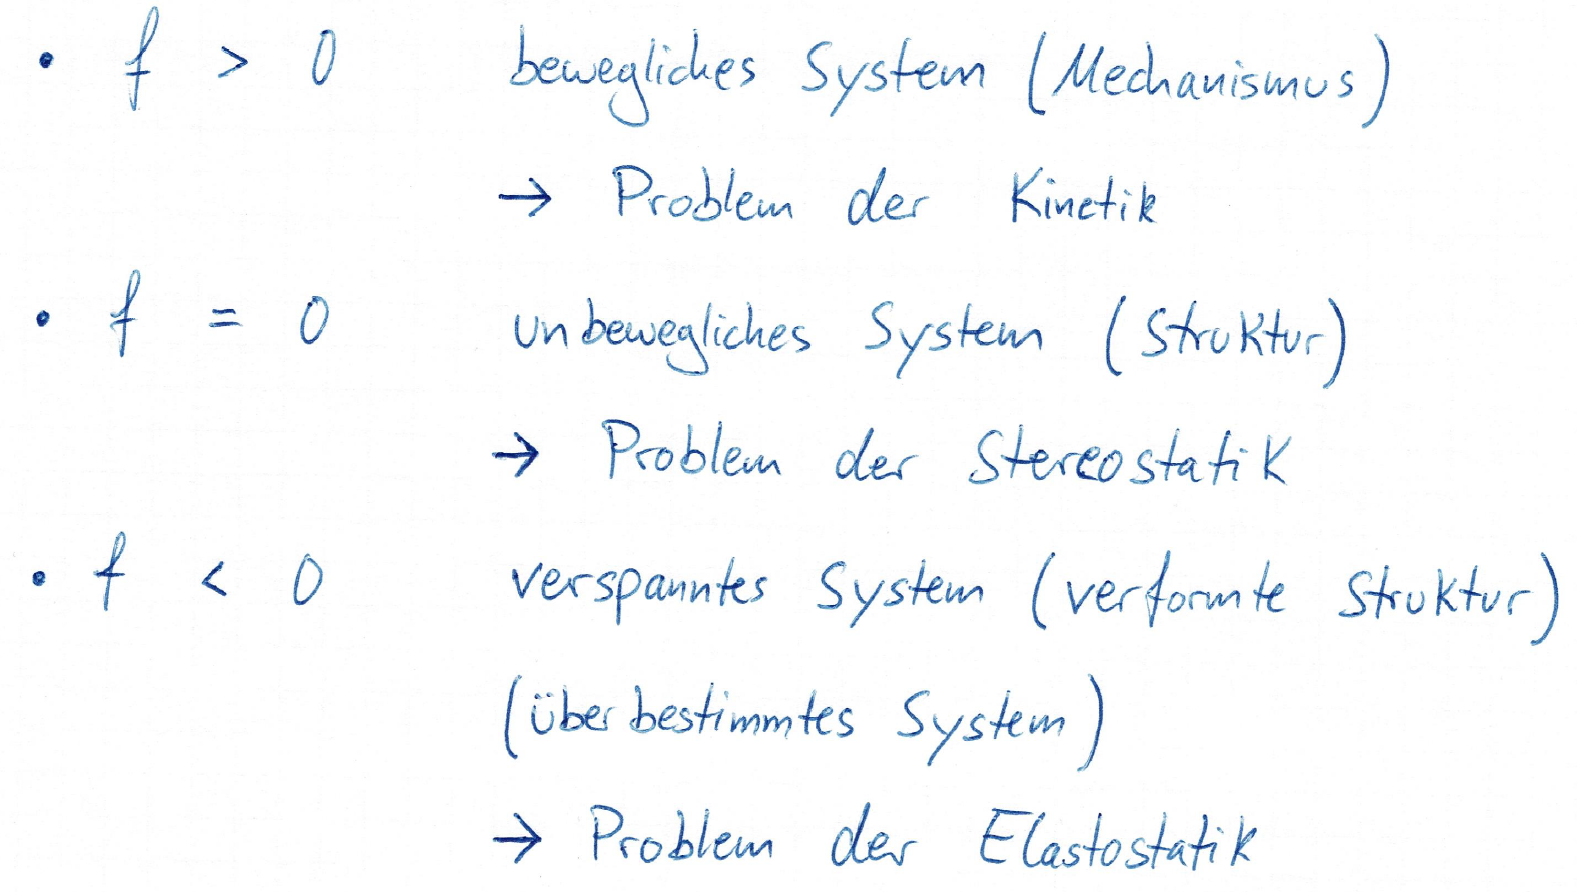 • f > 0 bewegliches System (Mechanismus)
→ Problem der Kinetik
• f = 0 unbewegliches System (Struktur)
→ Problem der Stereostatik
• f < 0 verspanntes System (verformte Struktur)
(überbestimmtes System)
→ Problem der Elastostatik